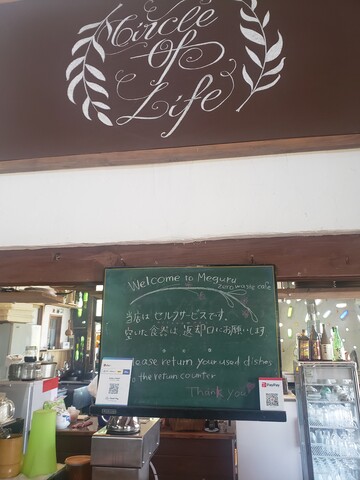 Circle
of
Life
Welcome to Meguru
zero waste cafe
当店は セルフサービスです。
空いた食器は 返却口にお願いします
Please return your used dishes
to the return counter
Thank you
PayPay